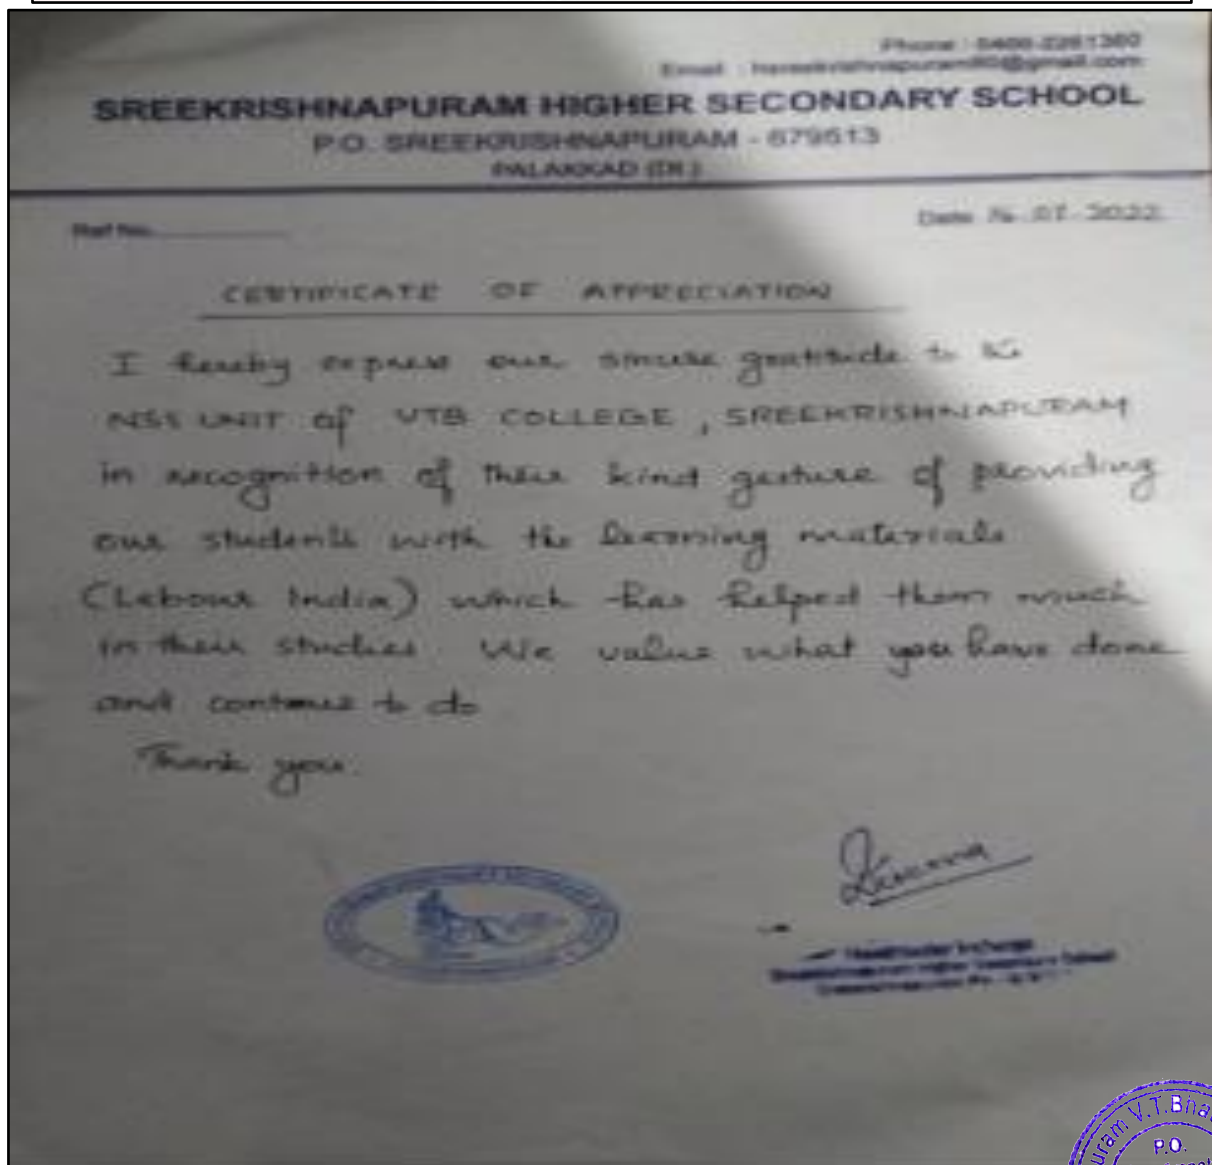 Phone : 0466-2261360
Email :
SREEKRISHNAPURAM HIGHER SECONDARY SCHOOL
P.O. SREEKRISHNAPURAM - 679513
PALAKKAD (Dt.)
Ref No.
Date 2022
CERTIFICATE OF APPRECIATION
I hereby express our sincere gratitude to the
NSS UNIT of VTB COLLEGE, SREEKRISHNAPURAM
in recognition of their kind gesture of providing
our students with the learning materials
(Labour India) which has helped them much
in their studies. We value what you have done
and continue to do
Thank you.
Higher Secondary School
V.T.Bha
P.O.